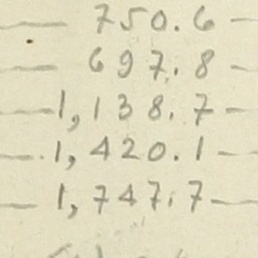 — 750.6 —
— 697.8 —
— 1,138.7 —
— 1,420.1 —
— 1,747.7 —